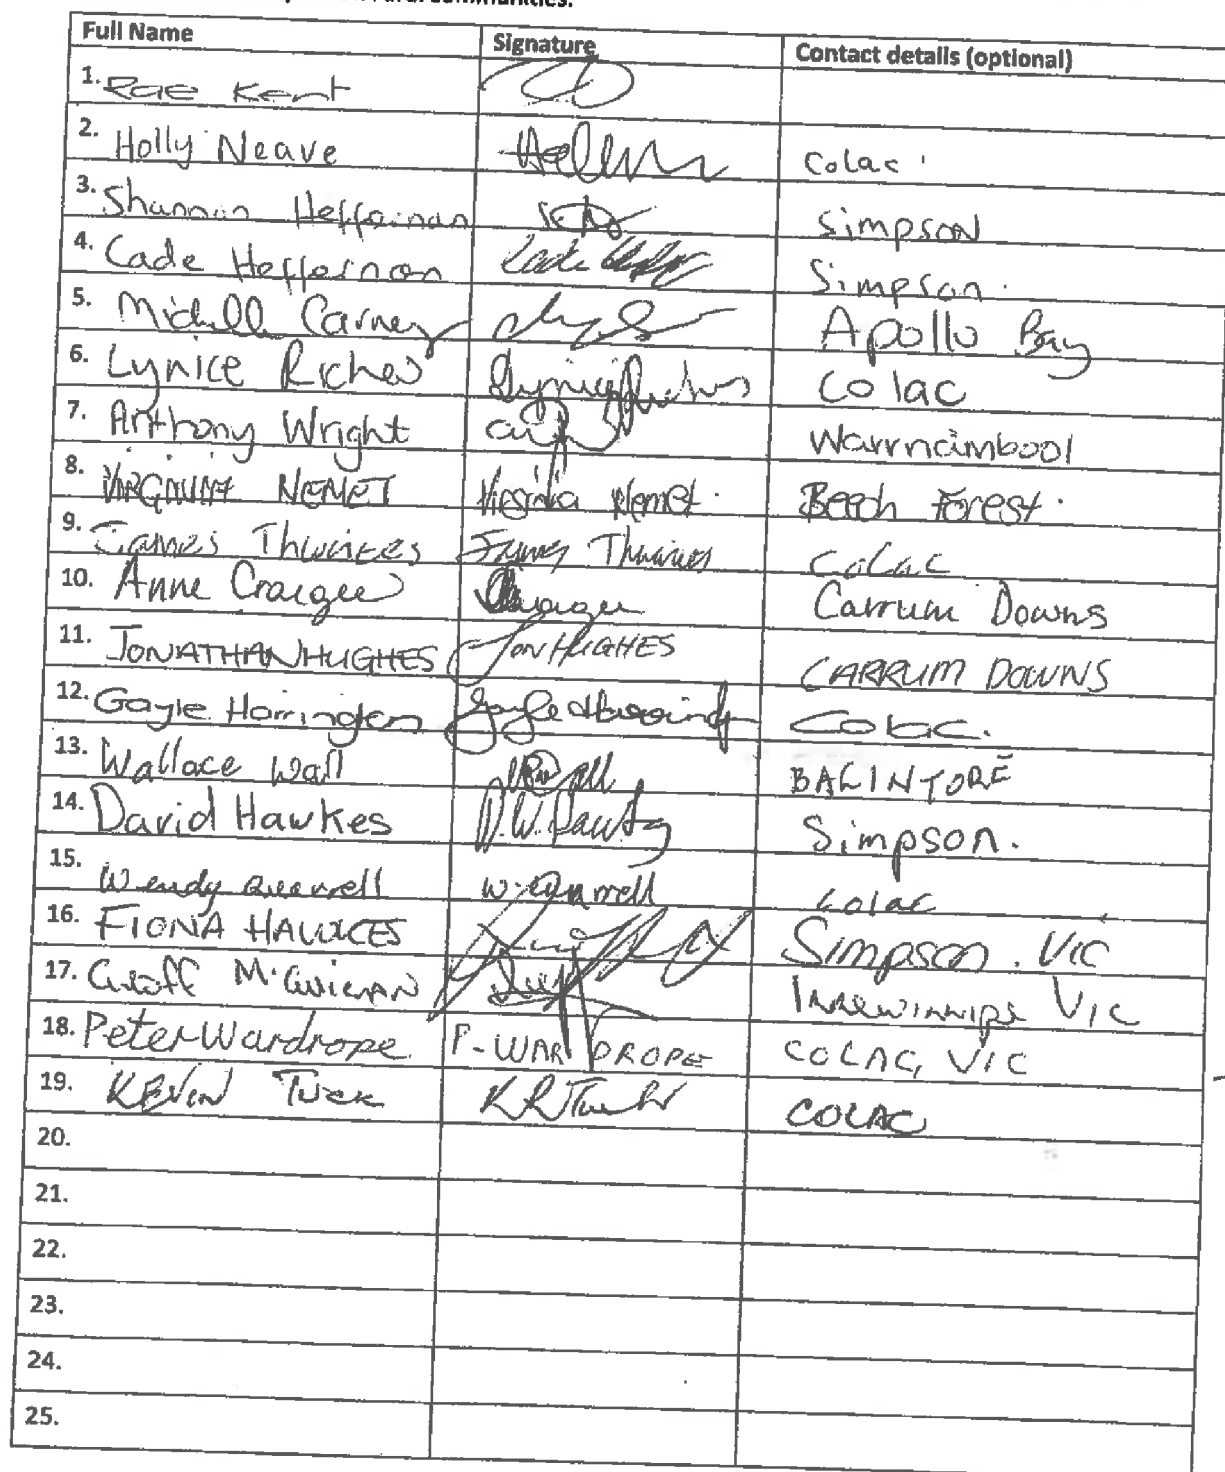 rural communities.
Full Name Signature Contact details (optional)
1. Rae Kent
2. Holly Neave Colac
3. Shannan Heffernan Simpson
4. Cade Heffernan Simpson.
5. Michelle Carney Apollo Bay
6. Lynice Riches Colac
7. Anthony Wright Warrnambool
8. VIRGINIA NEMET Virginia Nemet. Beech Forest.
9. James James Colac
10. Anne Craigee Carrum Downs
11. JONATHAN HUGHES JON HUGHES CARRUM DOWNS
12. Gayle Harrington Gayle Harrington Colac.
13. Wallace Wall BALINTORE
14. David Hawkes D.W. Simpson.
15. Wendy Colac
16. FIONA HAWKES Simpson. VIC
17. Geoff VIC
18. Peter Wardrope P-WARDROPE COLAC, VIC
19. KEVIN Tuck COLAC
20.
21.
22.
23.
24.
25.